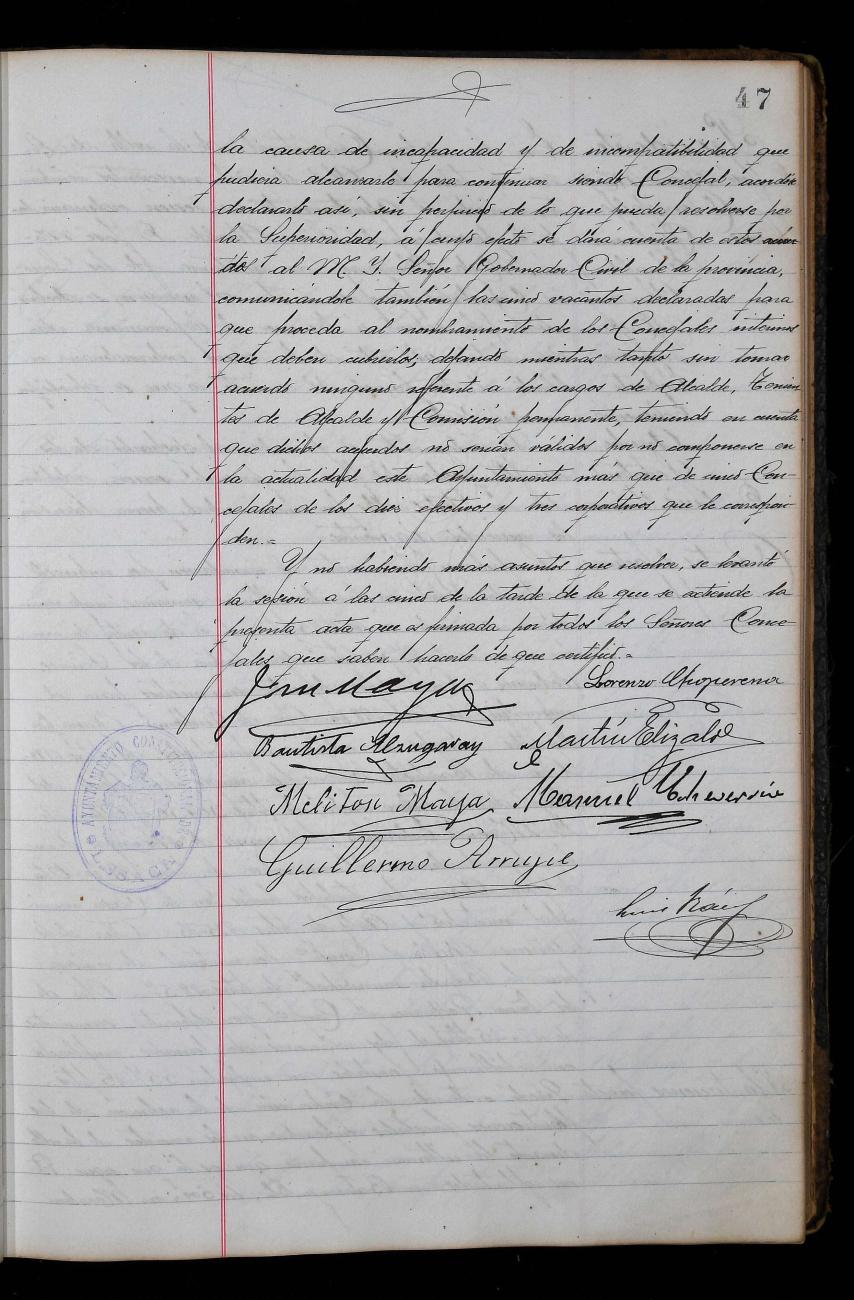 47
la causa de incapacidad y de incompatibilidad que
pudiera alcanzarle para continuar siendo Concejal, acordóse
declararlo así, sin perjuicio de lo que pueda resolverse por
la Superioridad, á cuyo efecto se dará cuenta de estos acuer-
dos al M. Y. Señor Gobernador Civil de la provincia,
comunicándole también las cinco vacantes declaradas para
que proceda al nombramiento de los Concejales interinos
que deben cubrirlos, dejando mientras tanto sin tomar
acuerdo ninguno referente á los cargos de Alcalde, Tenien-
tes de Alcalde y Comisión permanente, teniendo en cuenta
que dichos acuerdos no serían válidos por no componerse en
la actualidad este Ayuntamiento más que de cinco Con-
cejales de los diez efectivos y tres corporativos que le correspon-
den.=
Y no habiendo más asuntos que resolver, se levantó
la sesión á las cinco de la tarde de la que se extiende la
presente acta que es firmada por todos los Señores Conce-
jales que saben hacerlo de que certifico.=
Juan Maya
Lorenzo Choperena
Bautista Alzugaray
Martín Elizalde
Meliton Maya
Manuel Echeverría
Guillermo Arruye
Luis
AYUNTAMIENTO CONSTITUCIONAL DE
LESACA